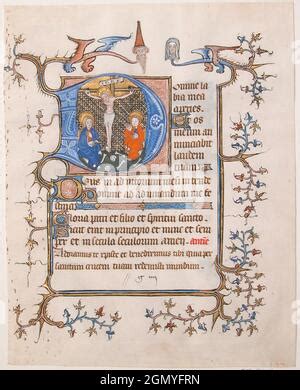 Domine la
bia mea
aperies.
Et os
meum an
nunciabit
laudem
tuam
Deus in adiutorium meum intende
ad adiuvandum me fe
stina
Gloria patri et filio et spiritui sancto.
Sicut erat in principio et nunc et sem
per et in secula seculorum amen.
Adoramus te xpiste et benedicimus tibi quia per
sanctam crucem tuam redemisti mundum.
alamy
Image ID: 2GMYFRN
www.alamy.com